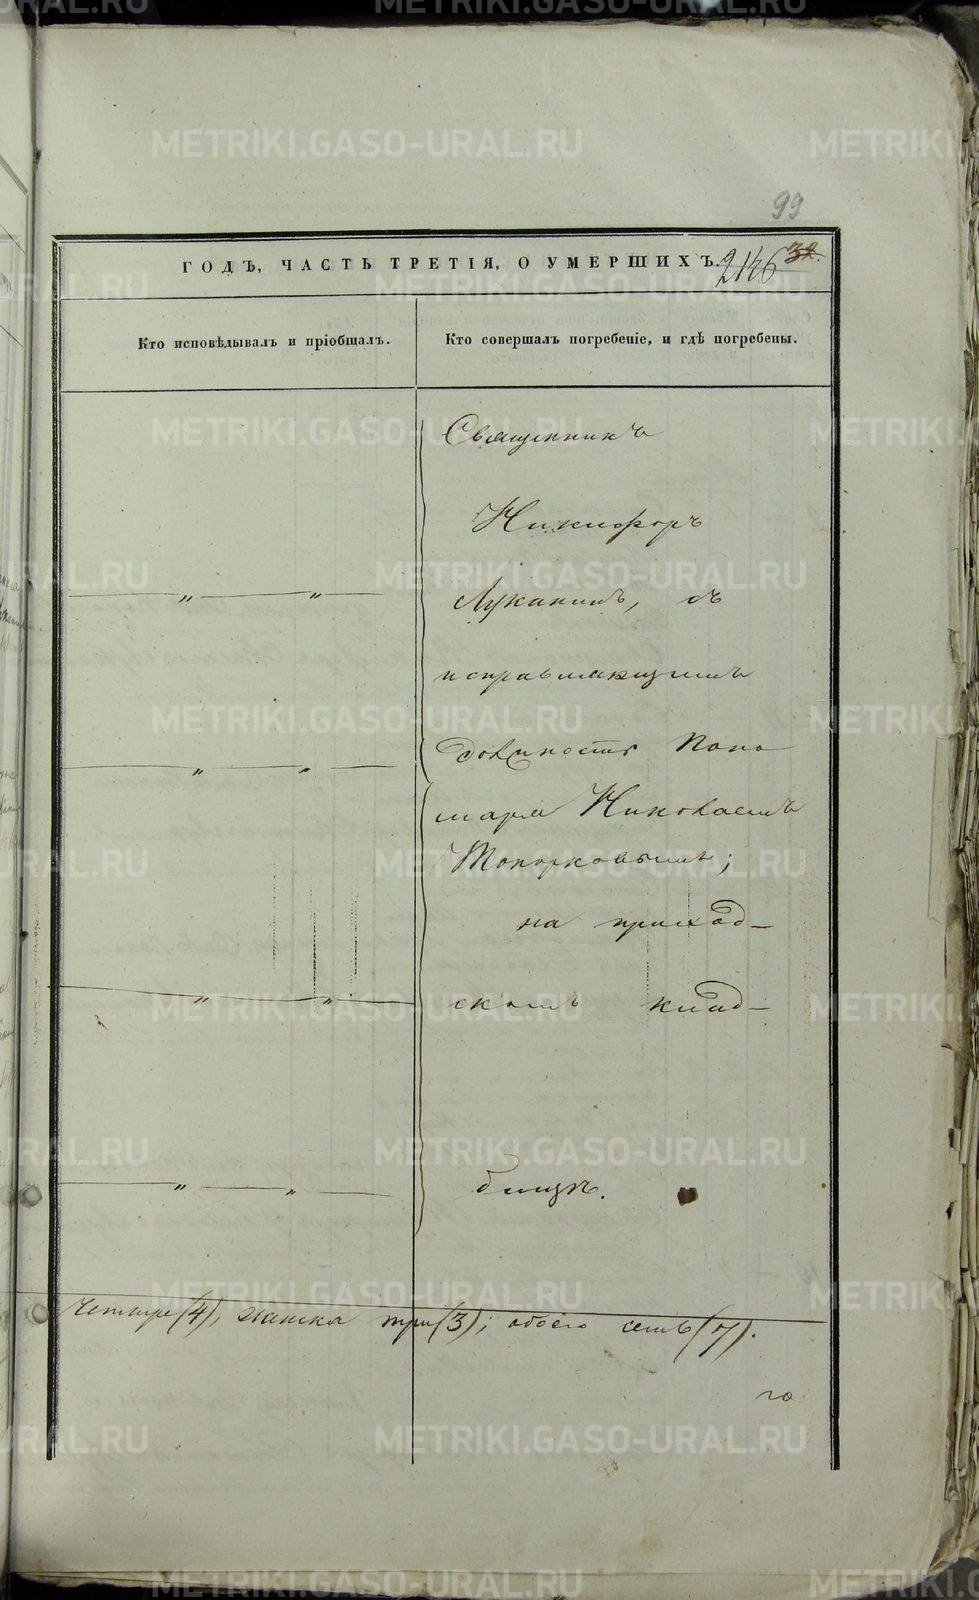 METRIKI.GASO-URAL.RU
99
ГОДЪ, ЧАСТЬ ТРЕТІЯ, О УМЕРШИХЪ. 2146 32.
Кто исповѣдывалъ и пріобщалъ.
Кто совершалъ погребеніе, и гдѣ погребены.
Священникъ
Никифоръ
Луканинъ, съ
исправляющимъ
должность Поно
маря Николаемъ
Топорковымъ;
на приход-
скомъ клад-
бищѣ.
Четыре (4), женска три (3); обоего семь (7).
го